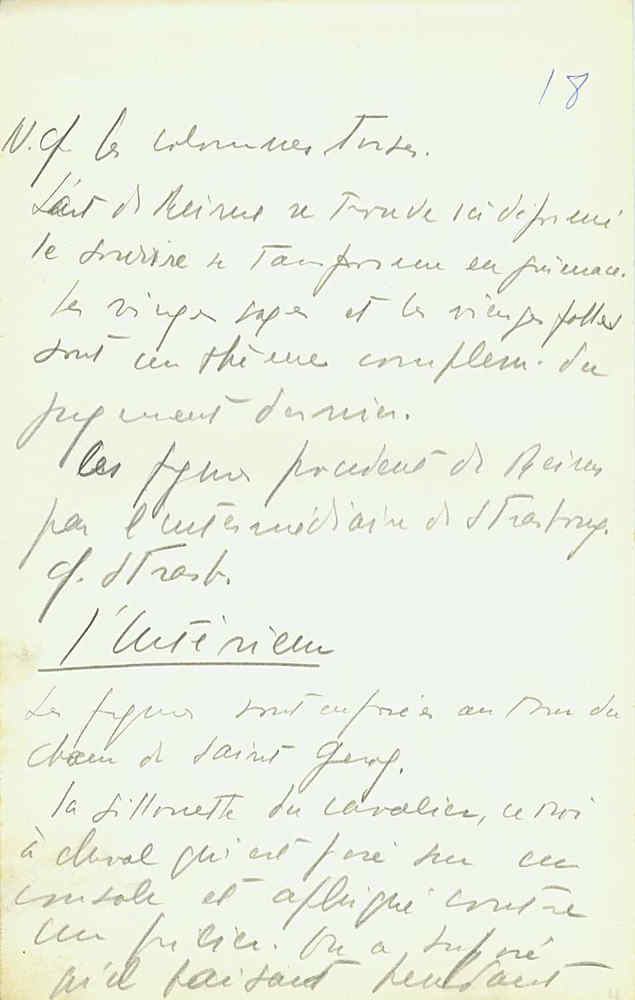 18
N. cf les colonnes torses.
L'art de Reims se trouve ici déformé
le sourire se transforme en grimace.
Les vierges sages et les vierges folles
sont un thème complém. du
jugement dernier.
les figures procèdent de Reims
par l'intermédiaire de Strasbourg.
cf. Strasb.
l'Intérieur
Les figures sont au tour du
chœur de Saint Georg.
la sillouette du cavalier, ce roi
à cheval qui est posé sur un
console et appliqué contre
un pilier. On a supposé
qu'il faisait pendant